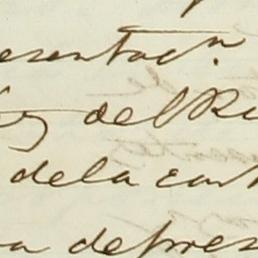 esentac.n
ey del Ri
dela cart
va depres